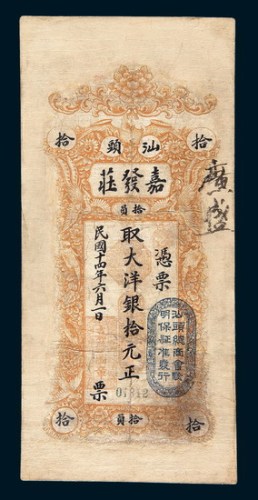 拾 汕頭 拾
嘉發莊
拾員
憑票
取大洋銀拾元正
民國十四年六月一日
票
廣盛
汕頭總商會驗
明保証准發行
拾 拾員 拾